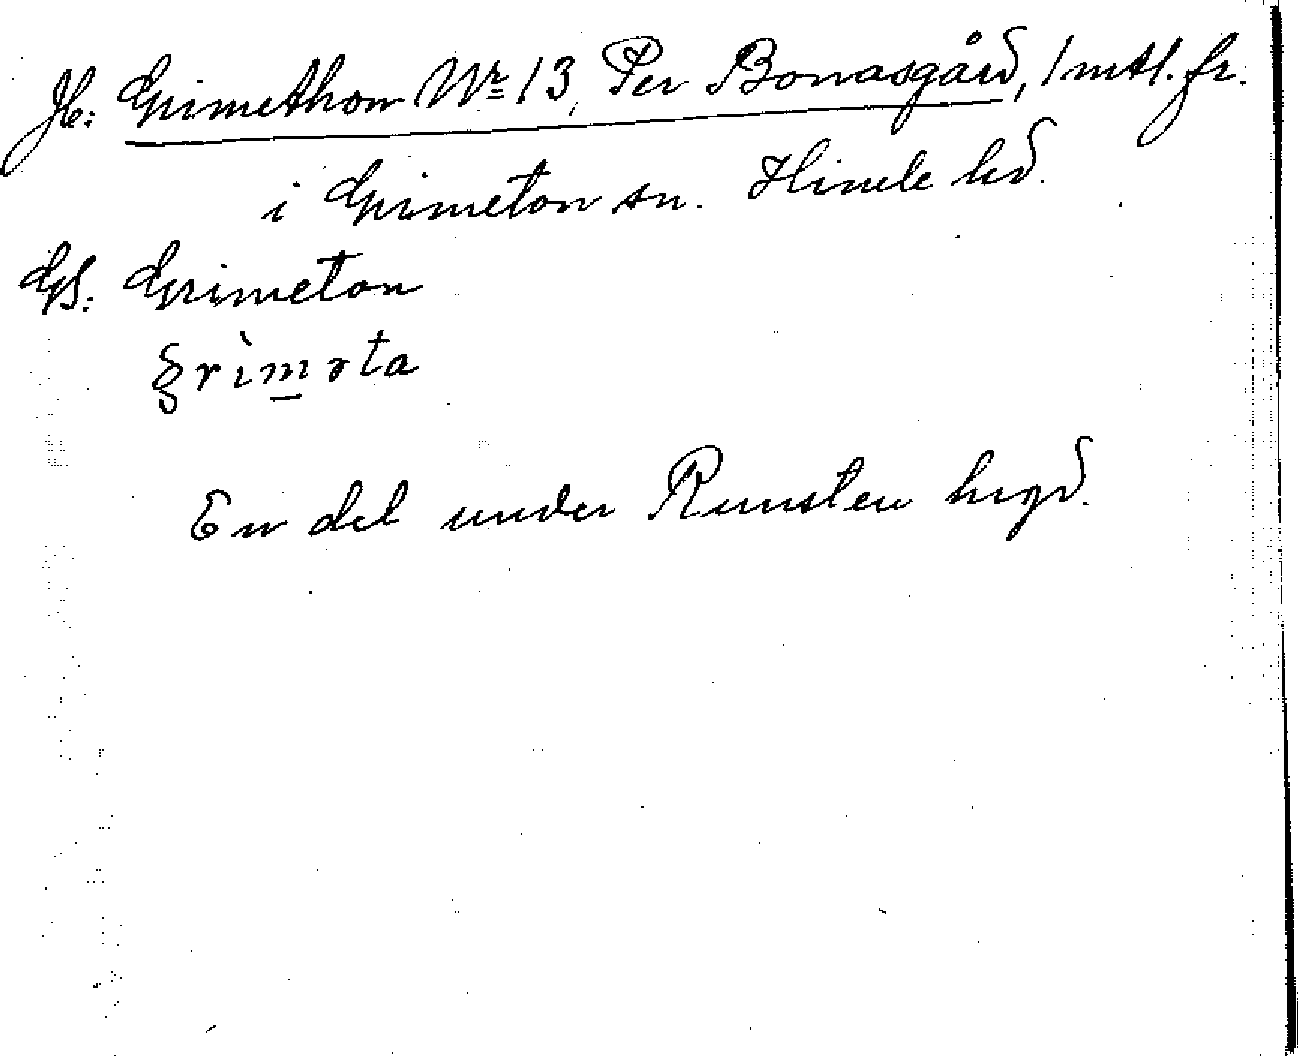 Jb: Grimethon Nr 13, Per Bonasgård, 1 mtl. fr.
i Grimeton sn. Himle hd.
GS: Grimeton
grìm̲əta
En del under Runsten hrgd.